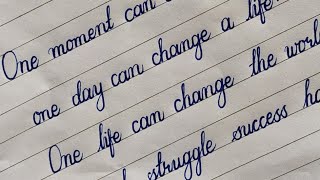 One moment can
one day can change a life.
One life can change the
struggle success